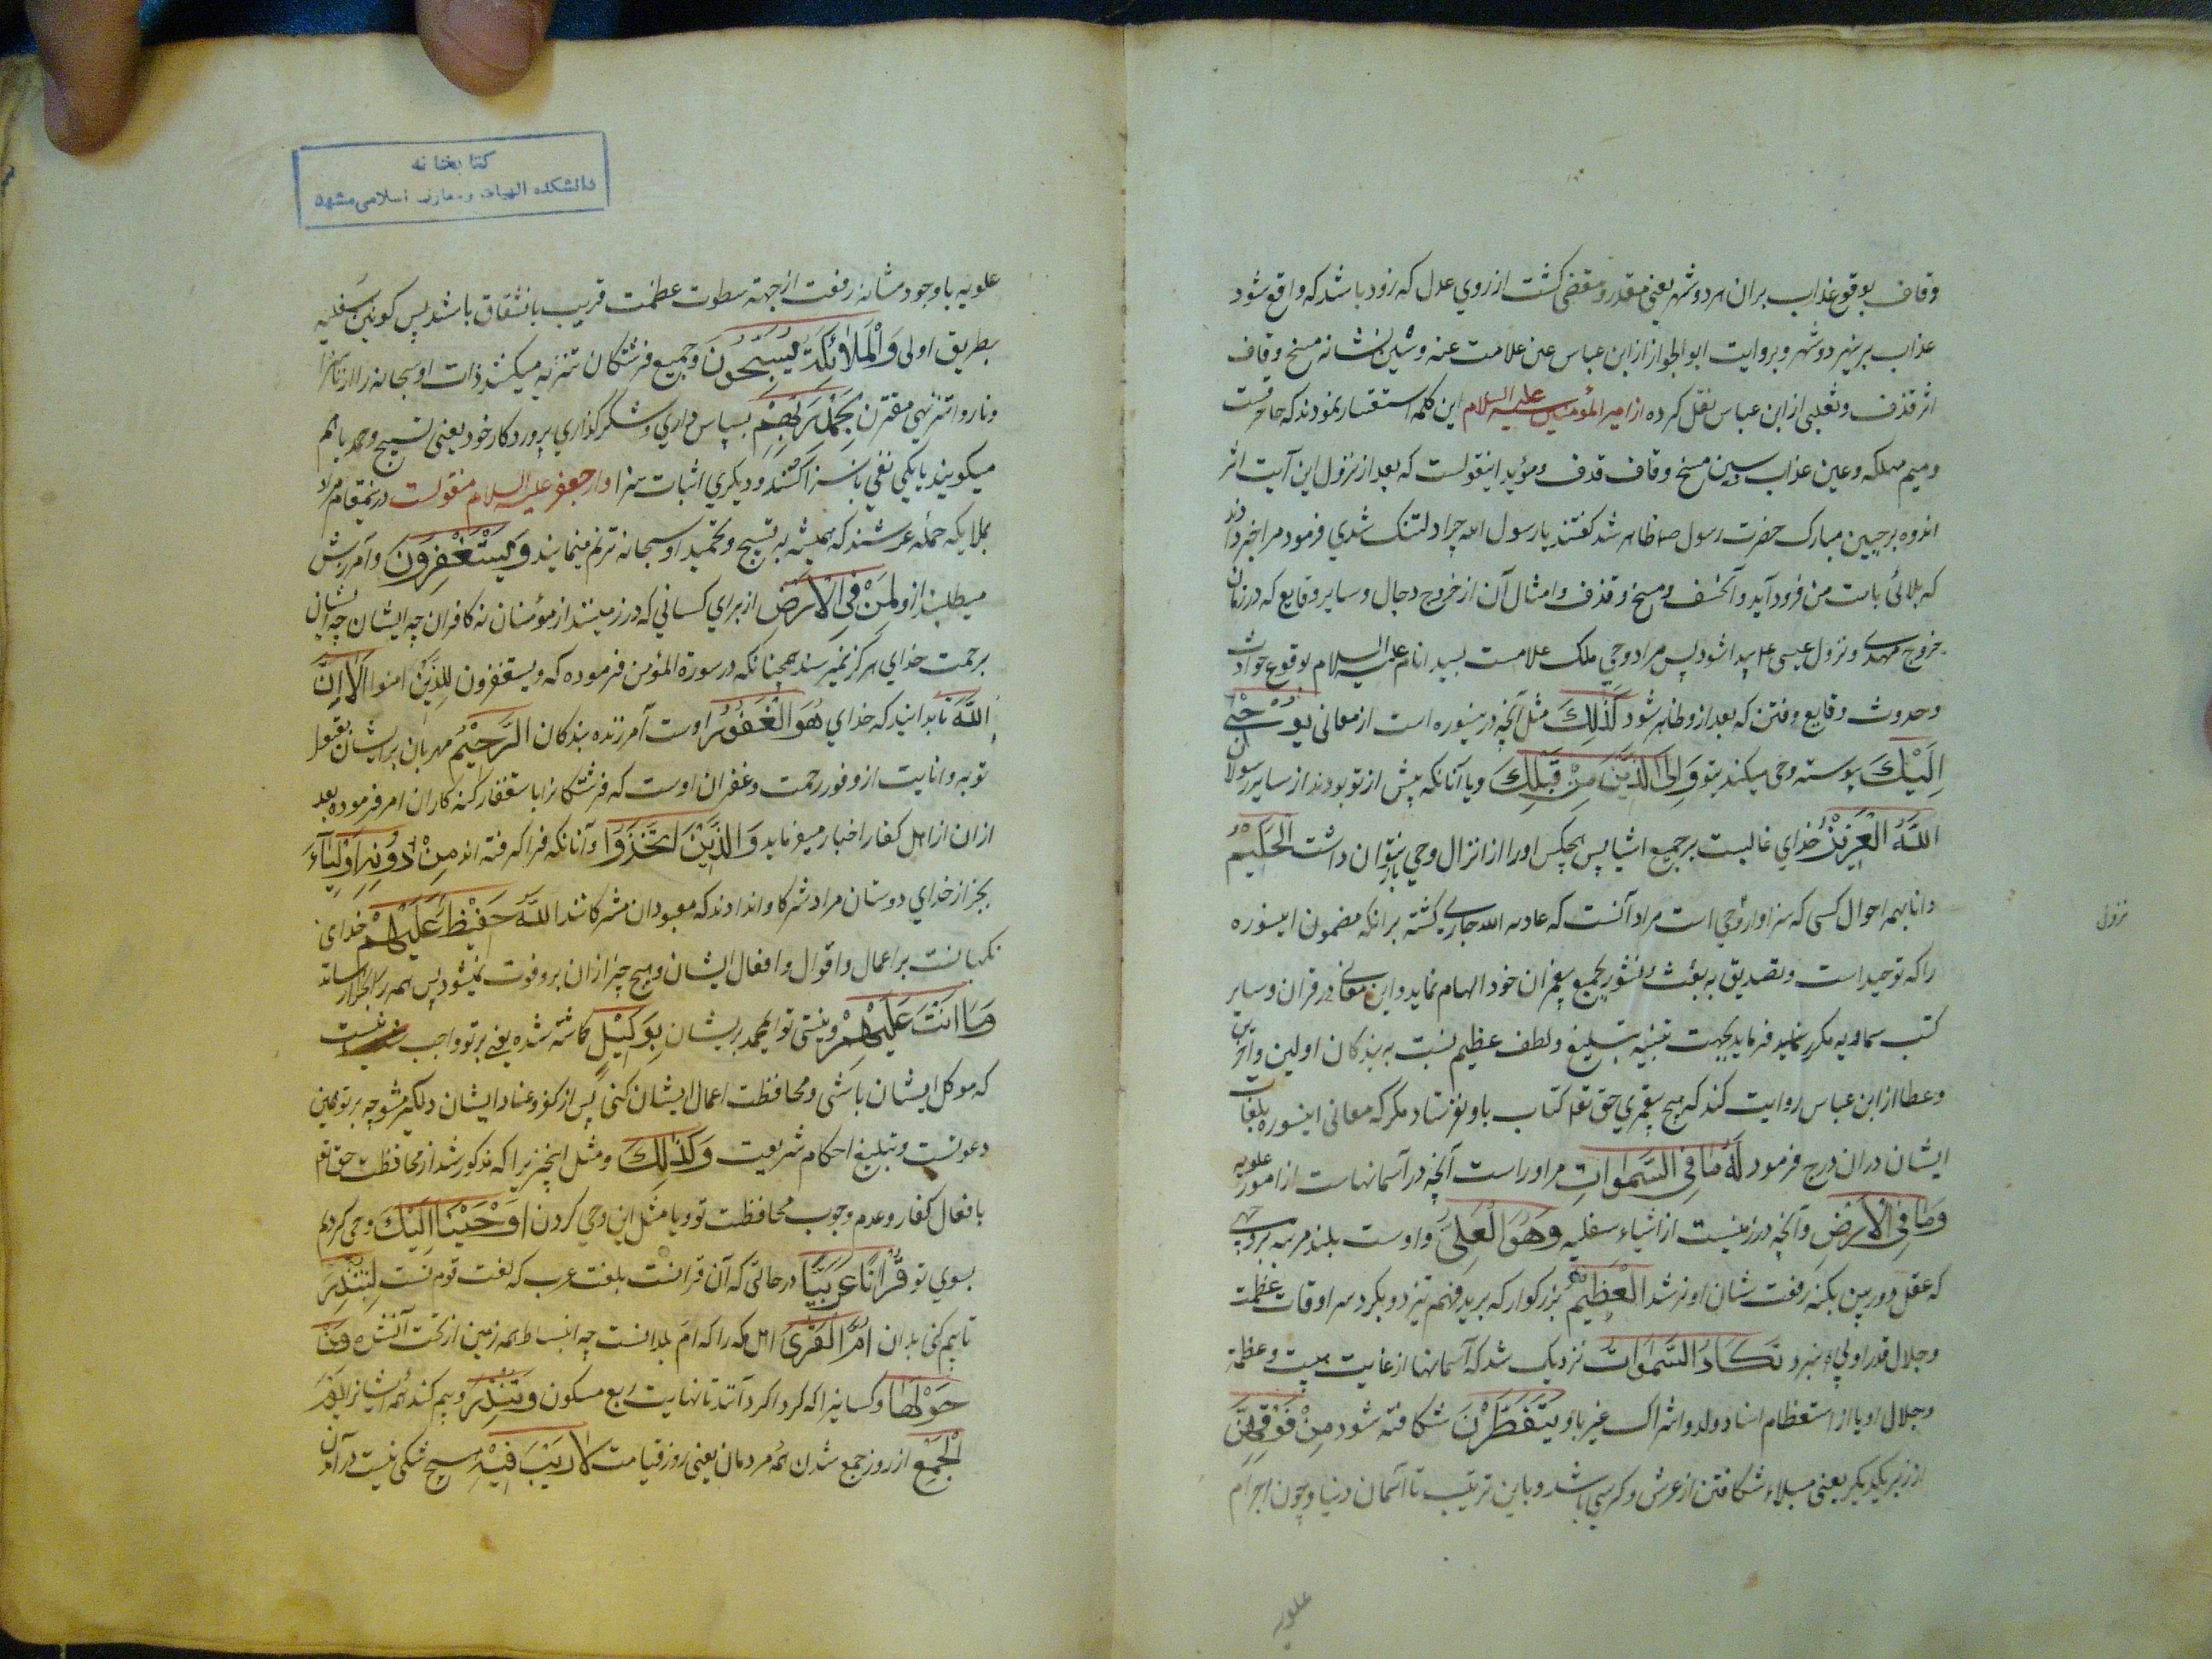 وقاف بوقوع عذاب بران هر دو شهر یعنی مقدر و مقضی کشت از روی عدل که زود باشد که واقع شود
عذاب برین دو شهر و بروایت ابو الجوزا از ابن عباس عین علامت عنه و سین نشانه مسخ وقاف
اثر قذف و ثعلبی از ابن عباس نقل کرده از امیر المؤمنین علیه السلام این کلمه استفسار نمودند که حا حرقست
و میم مهلکه و عین عذاب و سین مسخ وقاف قدف و مؤید اینقولست که بعد از نزول این آیت اثر
اندوه برجبین مبارک حضرت رسول ص ظاهر شد کفتند یا رسول الله چرا دلتنک شدی فرمود مرا خبر دادند
که بلائی بامت من فرود آید و آن خسف و مسخ و قذف و امثال آن از خروج دجال و سایر وقایع که در زمان
خروج مهدی و نزول عیسی ع پیدا شود پس مراد وحی ملک علامست بسید انام علیه السلام بوقوع حوادث
و حدوث وقایع و فتن که بعد از و ظاهر شود كَذٰلِكَ مثل آنچه درینسوره است از معانی يُوحِي
اِلَيْكَ پیوسته وحی میکند بتو وَاِلَى الَّذِينَ مِنْ قَبْلِكَ و یا آنانکه پیش از تو بودند از سایر رسولان
اللّٰهُ الْعَزِيزُ خدای غالبست بر جمیع اشیا پس هیچکس او را از انزال وحی باز نتوان داشت الْحَكِيمُ
دانا بهمه احوال کسی که سزاوار وحی است مراد آنست که عادت الله جاری کشته برانکه مضمون اینسوره
را که توحید است و تصدیق به بعث و نشور بجمیع پیغمبران خود الهام نماید و این معانی در قران و سایر
کتب سماویه مکرر فرماید بجهت تنبیه بتبلیغ و لطف عظیم نسبت به بندکان اولین و آخرین
و عطا از ابن عباس روایت کند که هیچ پیغمبری حق تعالی کتاب باو نفرستاد مکر که معانی اینسوره بلغات
ایشان دران درج فرمود لَهُ مَا فِي السَّمٰوَاتِ مر اوراست آنچه در آسمانهاست از امور علویه
وَمَا فِي الْاَرْضِ و آنچه در زمینست از اشیاء سفلیه وَهُوَ الْعَلِيُّ و اوست بلند مرتبه
که عقل دوربین بکنه رفعت شان او نرسد الْعَظِيمُ بزرکوار که برید فهم تیز دو بکرد سرادقات عظمت
و جلال قدر او پی نبرد تَكَادُ السَّمٰوَاتُ نزدیک شد که آسمانها از غایت هیبت و عظمة
و جلال او یا از استعظام اسناد ولد و اشراک غیر باو يَتَفَطَّرْنَ شکافته شود مِنْ فَوْقِهِنَّ
از زبر یکدیکر یعنی مبداء شکافتن از عرش و کرسی باشد و باین ترتیب تا آسمان دنیا و چون اجرام
علویه
نزول
کتابخانه
دانشکده الهیات و معارف اسلامی مشهد
علویه با وجود مشانه رفعت از جهة سطوت عظمت قریب بانشقاق باشد پس کونین سفلیه
بطریق اولی وَالْمَلٰائِكَةُ يُسَبِّحُونَ و جمیع فرشتکان تنزیه میکنند ذات او سبحانه را از ناسزا
و ناروا تنزیهی مقترن بِحَمْدِ رَبِّهِمْ بسپاس داری و شکرکذاری پروردکار خود یعنی تسبیح و حمد با هم
میکویند یا یکی نفی ناسزا کنند و دیکری اثبات سزا و از جعفر علیه السلام منقولست درینمقام مراد
بملایکه حمله عرشند که همیشه به تسبیح و تحمید او سبحانه ترنم مینمایند وَيَسْتَغْفِرُونَ و آمرزش
میطلبند ازو لِمَنْ فِي الْاَرْضِ از برای کسانی که در زمینند از مؤمنان نه کافران چه ایشان
برحمت خدای هرکز نمیرسند همچنانکه در سورة المؤمن فرموده که و یستغفرون لِلَّذِينَ آمنوا اَلَا اِنَّ
اللّٰهَ بدانید که خدای هُوَ الْغَفُورُ اوست آمرزنده بندکان الرَّحِيمُ مهربان برایشان بقبول
توبه و انابت از وفور رحمت و غفران اوست که فرشتکانرا باستغفار کنه کاران امر فرموده بعد
ازان از اهل کفار اخبار میفرماید وَالَّذِينَ اتَّخَذُوا و آنانکه فرا کرفته اند مِنْ دُونِهِ اَوْلِيَآءَ
بجز از خدای دوستان مراد شرکا و اندادند که معبودان مشرکانند اللّٰهُ حَفِيظٌ عَلَيْهِمْ خدای
نکهبانست بر اعمال و اقوال و افعال ایشان و هیچ چیز ازان برو فوت نمیشود پس همه را
وَمَا اَنْتَ عَلَيْهِمْ و نیستی تو ای محمد بریشان بِوَكِيلٍ کماشته شده یعنی بر تو واجب نیست
که موکل ایشان باشی و محافظت اعمال ایشان کنی پس از کفر و عناد ایشان دلکیر مشو چه بر تو همین
دعوتست و تبلیغ احکام شریعت وَكَذٰلِكَ و مثل این چیزها که مذکور شد از محافظت حق تعالی
بافعال کفار و عدم وجوب محافظت تو و یا مثل این وحی کردن اَوْحَيْنَا اِلَيْكَ وحی کردیم
بسوی تو قُرْاٰنًا عَرَبِيًّا در حالتی که آن قرانست بلغت عرب که لغت قوم تست لِتُنْذِرَ
تا بیم کنی بدان اُمَّ الْقُرٰى اهل مکه را که ام بلدانست چه انبساط همه زمین از تحت آنشده وَمَنْ
حَوْلَهَا و کسانیرا که کرداکرد آنند تا نهایت ربع مسکون وَتُنْذِرَ و بیم کند همه ایشانرا يَوْمَ
الْجَمْعِ از روز جمع شدن همه مردمان یعنی روز قیامت لَا رَيْبَ فِيهِ هیچ شکی نیست در آمدن